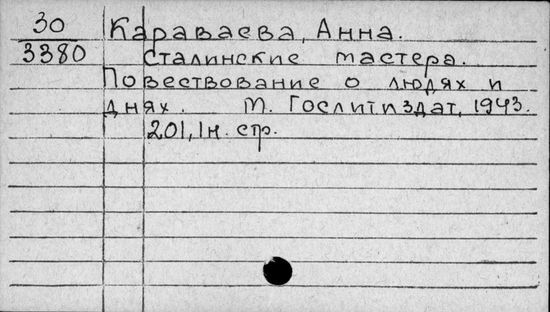 30 Караваева, Анна.
3380 Сталинские мастера.
Повествование о людях и
днях. М. Гослитиздат, 1943.
201, 1н. стр.